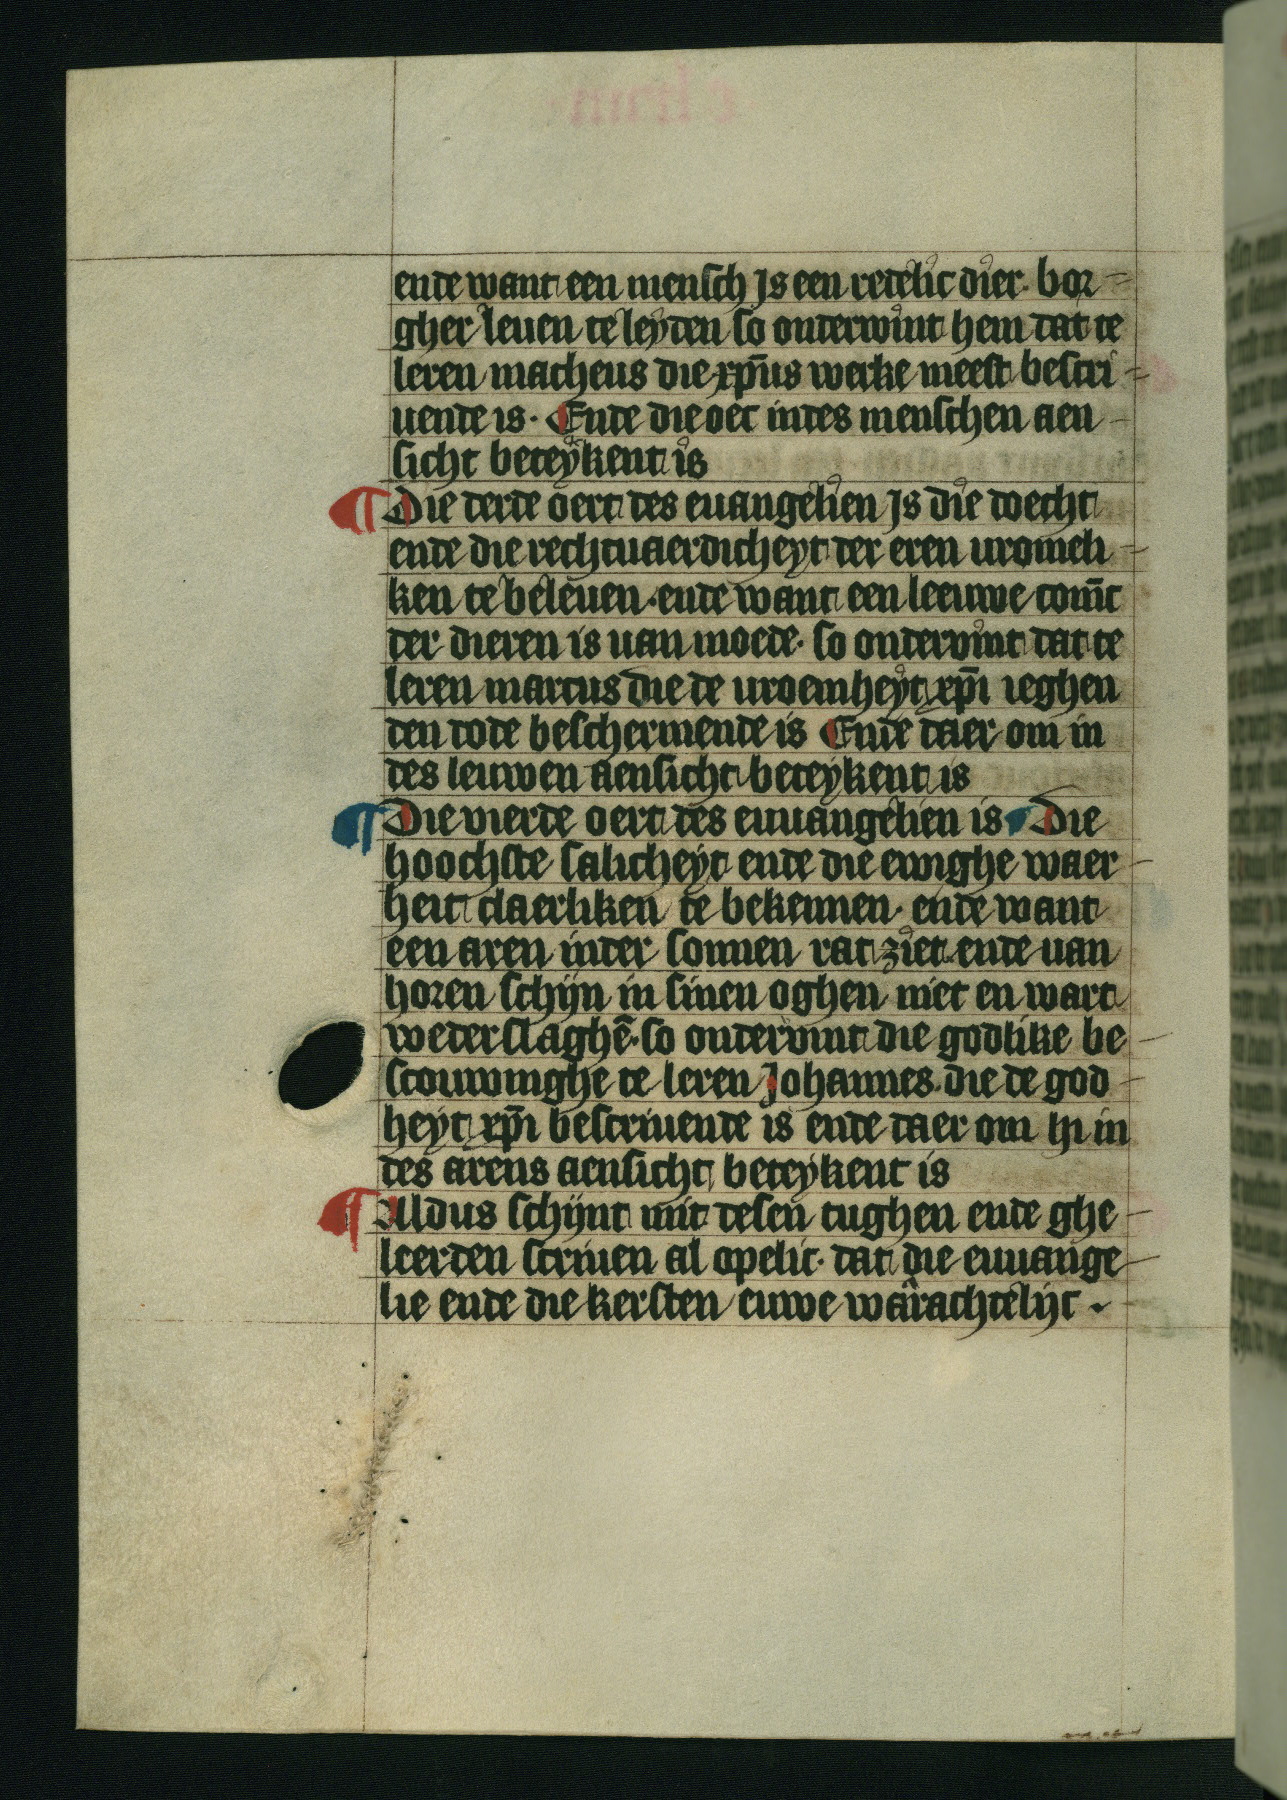 ende want een mensch Js een redelic dier · bor-
gher leuen te leyden so onderwint hem dat te
leren matheus die xp̄us werke meest bescri-
uende is · Ende die oec indes menschen aen-
sicht beteykent is
¶ Die derde oert des euangelien Js die doecht
ende die rechtuaerdicheyt der eren uromeli-
ken te beleuen · ende want een leeuwe coninc
der dieren is uan moede · so ondervint dat te
leren marcus die de uroemheyt xp̄i ieghen
den dode beschermende is Ende daer om in
des leuwen aensicht beteykent is
¶ Die vierde oert des euuangelien is · Die
hoochste salicheyt ende die ewighe waer-
heit claerliken te bekennen · ende want
een aren inder sonnen rat ziet ende uan
horen schijn in sinen oghen niet en wart
wederslaghē · so ondervint die godlike be-
scouwinghe te leren Johannes · die de god-
heyt xp̄i bescriuende is ende daer om hi in
des arens aensicht beteykent is
¶ Aldus schijnt mit desen tughen ende ghe-
leerden scriuen al opelic · dat die euuange-
lie ende die kersten euwe warachtelijc